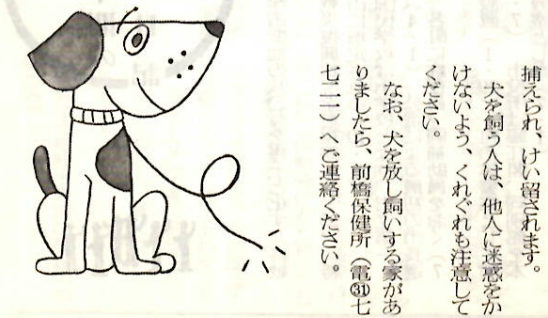 捕えられ、けい留されます。
　犬を飼う人は、他人に迷惑をか
けないよう、くれぐれも注意して
ください。
　なお、犬を放し飼いする家があ
りましたら、前橋保健所（電㉛七
七二一）へご連絡ください。